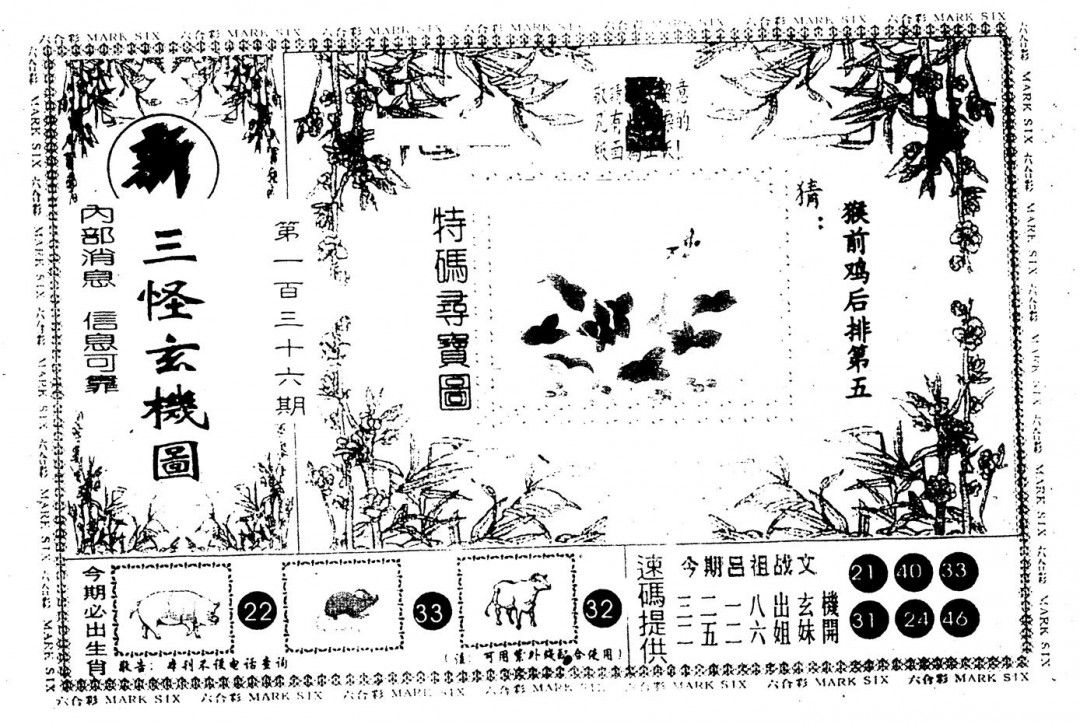 六合彩 MARK SIX 六合彩 MARK SIX 六合彩 MARK SIX 六合彩 MARK SIX 六合彩 MARK SIX 六合彩 MARK SIX 六合彩 MARK SIX
新
三怪玄機圖
內部消息 信息可靠
第一百三十六期
特碼尋寶圖
猜：
猴前鸡后排第五
今期必出生肖
22
33
32
敬告：本刊不设电话查询
（注：可用紫外线配合使用）
速碼提供
今期吕祖战文
三二一八出玄機
二五二六姐妹開
21 40 33
31 24 46
六合彩 MARK SIX 六合彩 MARK SIX 六合彩 MARK SIX 六合彩 MARK SIX 六合彩 MARK SIX 六合彩 MARK SIX 六合彩 MARK SIX